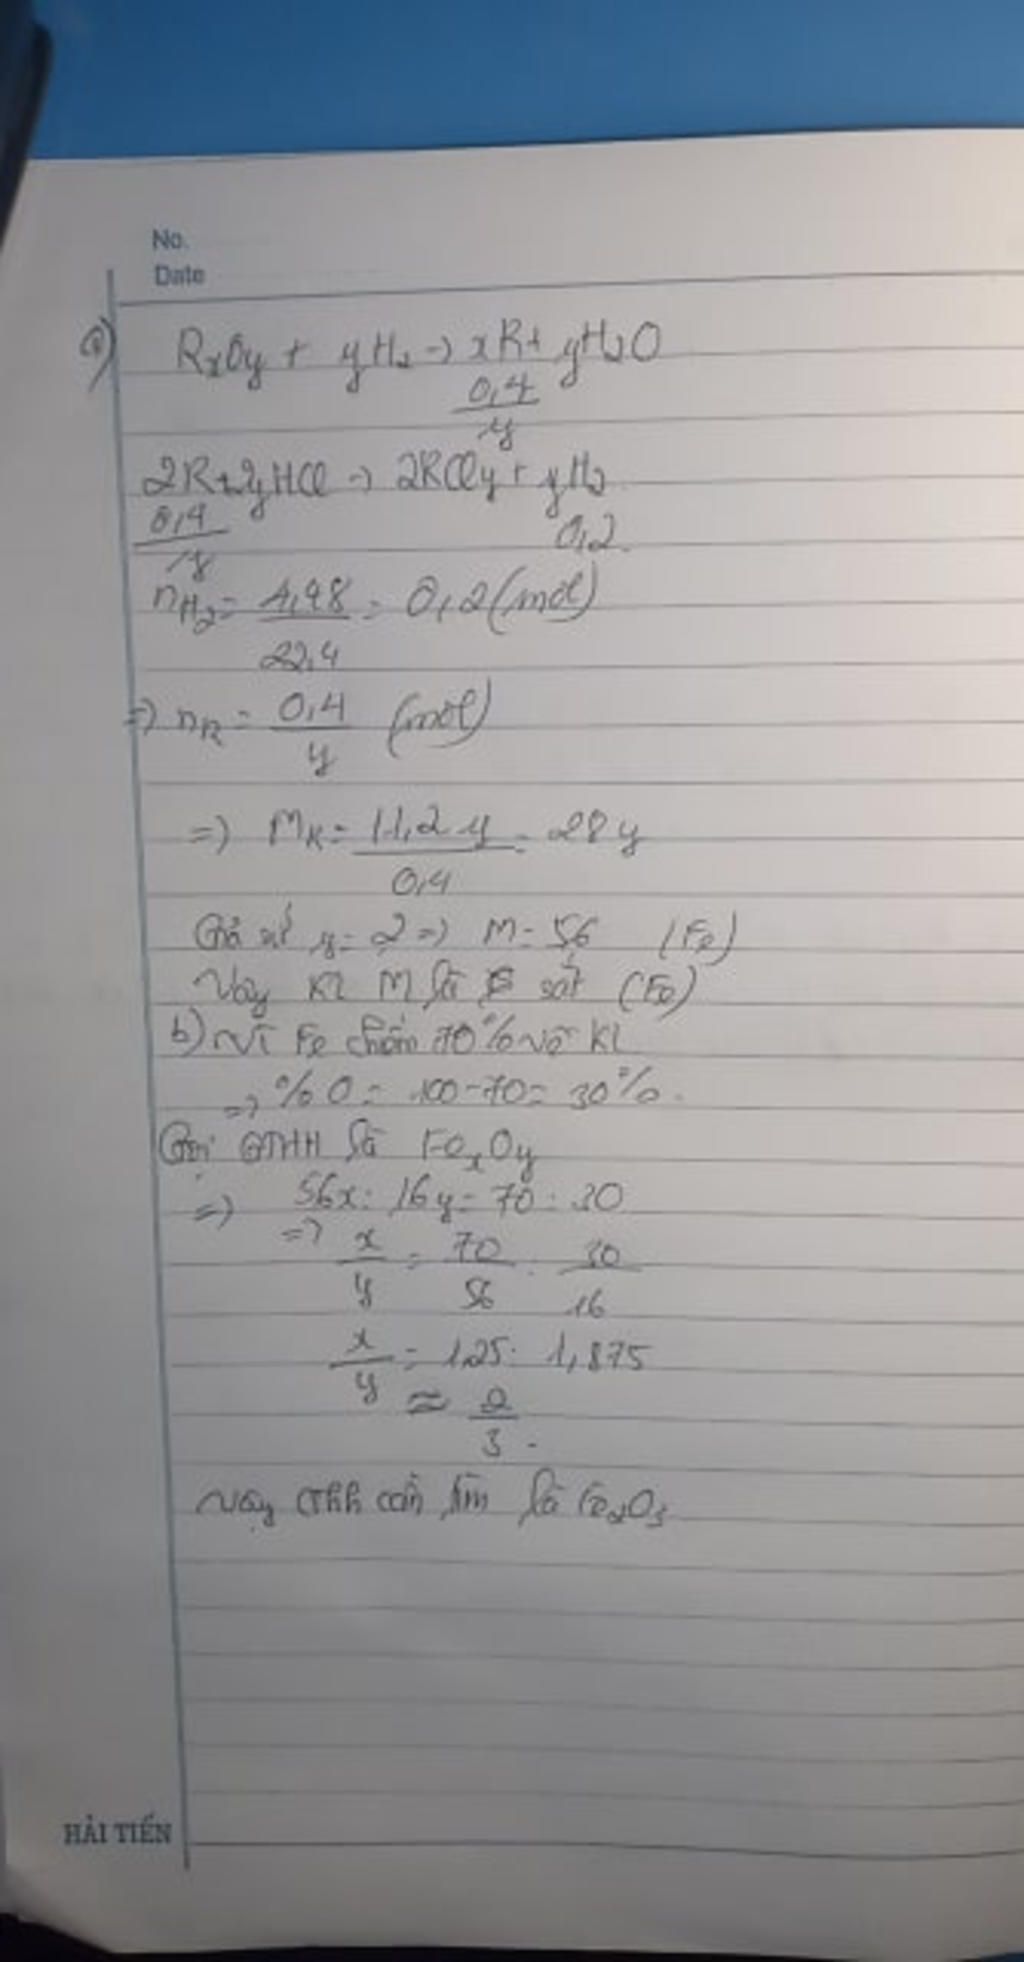 No.
Date
a) RxOy + yH2 → xR + yH2O
0,4
y
2R + 2yHCl → 2RCly + yH2
0,4
y
0,2
nH2 = 4,48 = 0,2 (mol)
22,4
=) nR = 0,4 (mol)
y
=) MR = 11,2 y = 28y
0,4
Giả sử y = 2 =) M = 56 (Fe)
Vậy KL M là sắt (Fe)
b) Vì Fe chiếm 70% về KL
=> % O = 100 - 70 = 30%.
Gọi CTHH là FexOy
=) 56x : 16y = 70 : 30
=> x = 70 : 30
y 56 16
x = 1,25 : 1,875
y
≈ 2
3.
Vậy CTHH cần tìm là Fe2O3
HẢI TIẾN